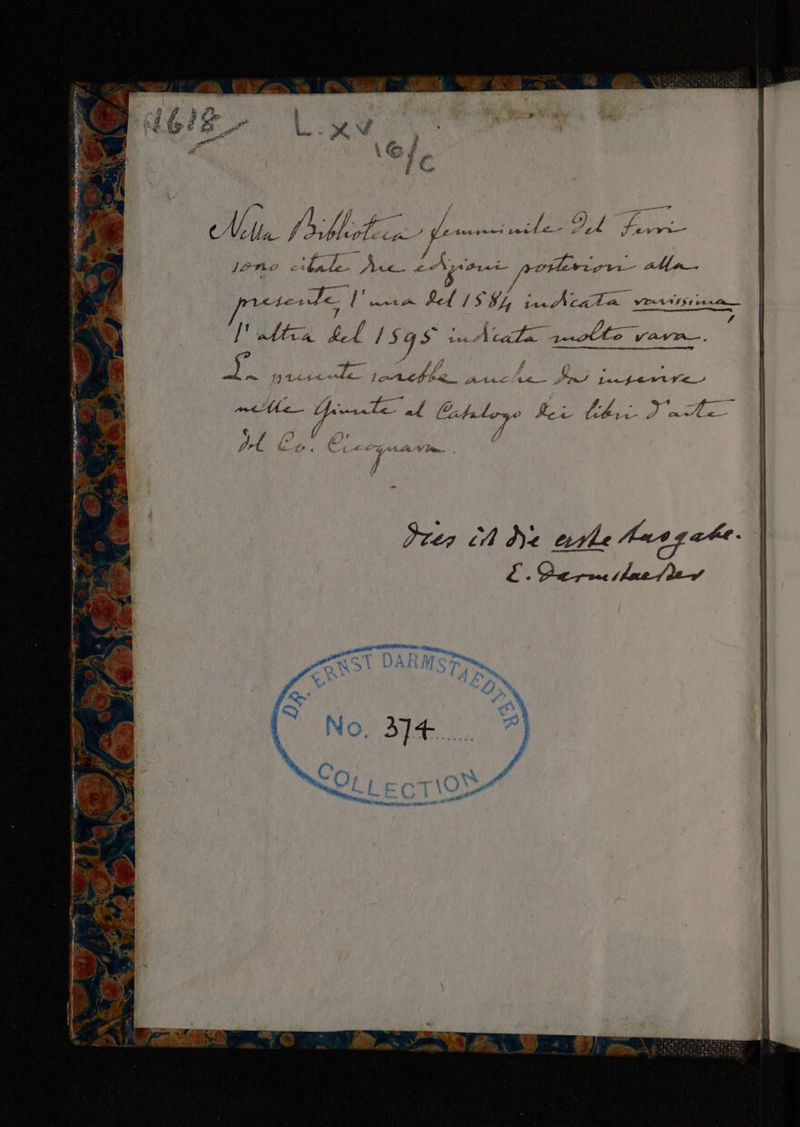 1618- L.xv
16/c
Nella Biblioteca femminile del Ferri
sono citate due edizioni posteriori alla
presente, l'una del 1584 indicata rarissima
l'altra del 1595 indicata molto rara.
La presente sarebbe anche da inserire
nelle Giunte al Catalogo dei libri d'arte
del Co. Cicognara.
Dies ist die erste Ausgabe.
E. Darmstaedter
DR. ERNST DARMSTAEDTER
No. 374
COLLECTION